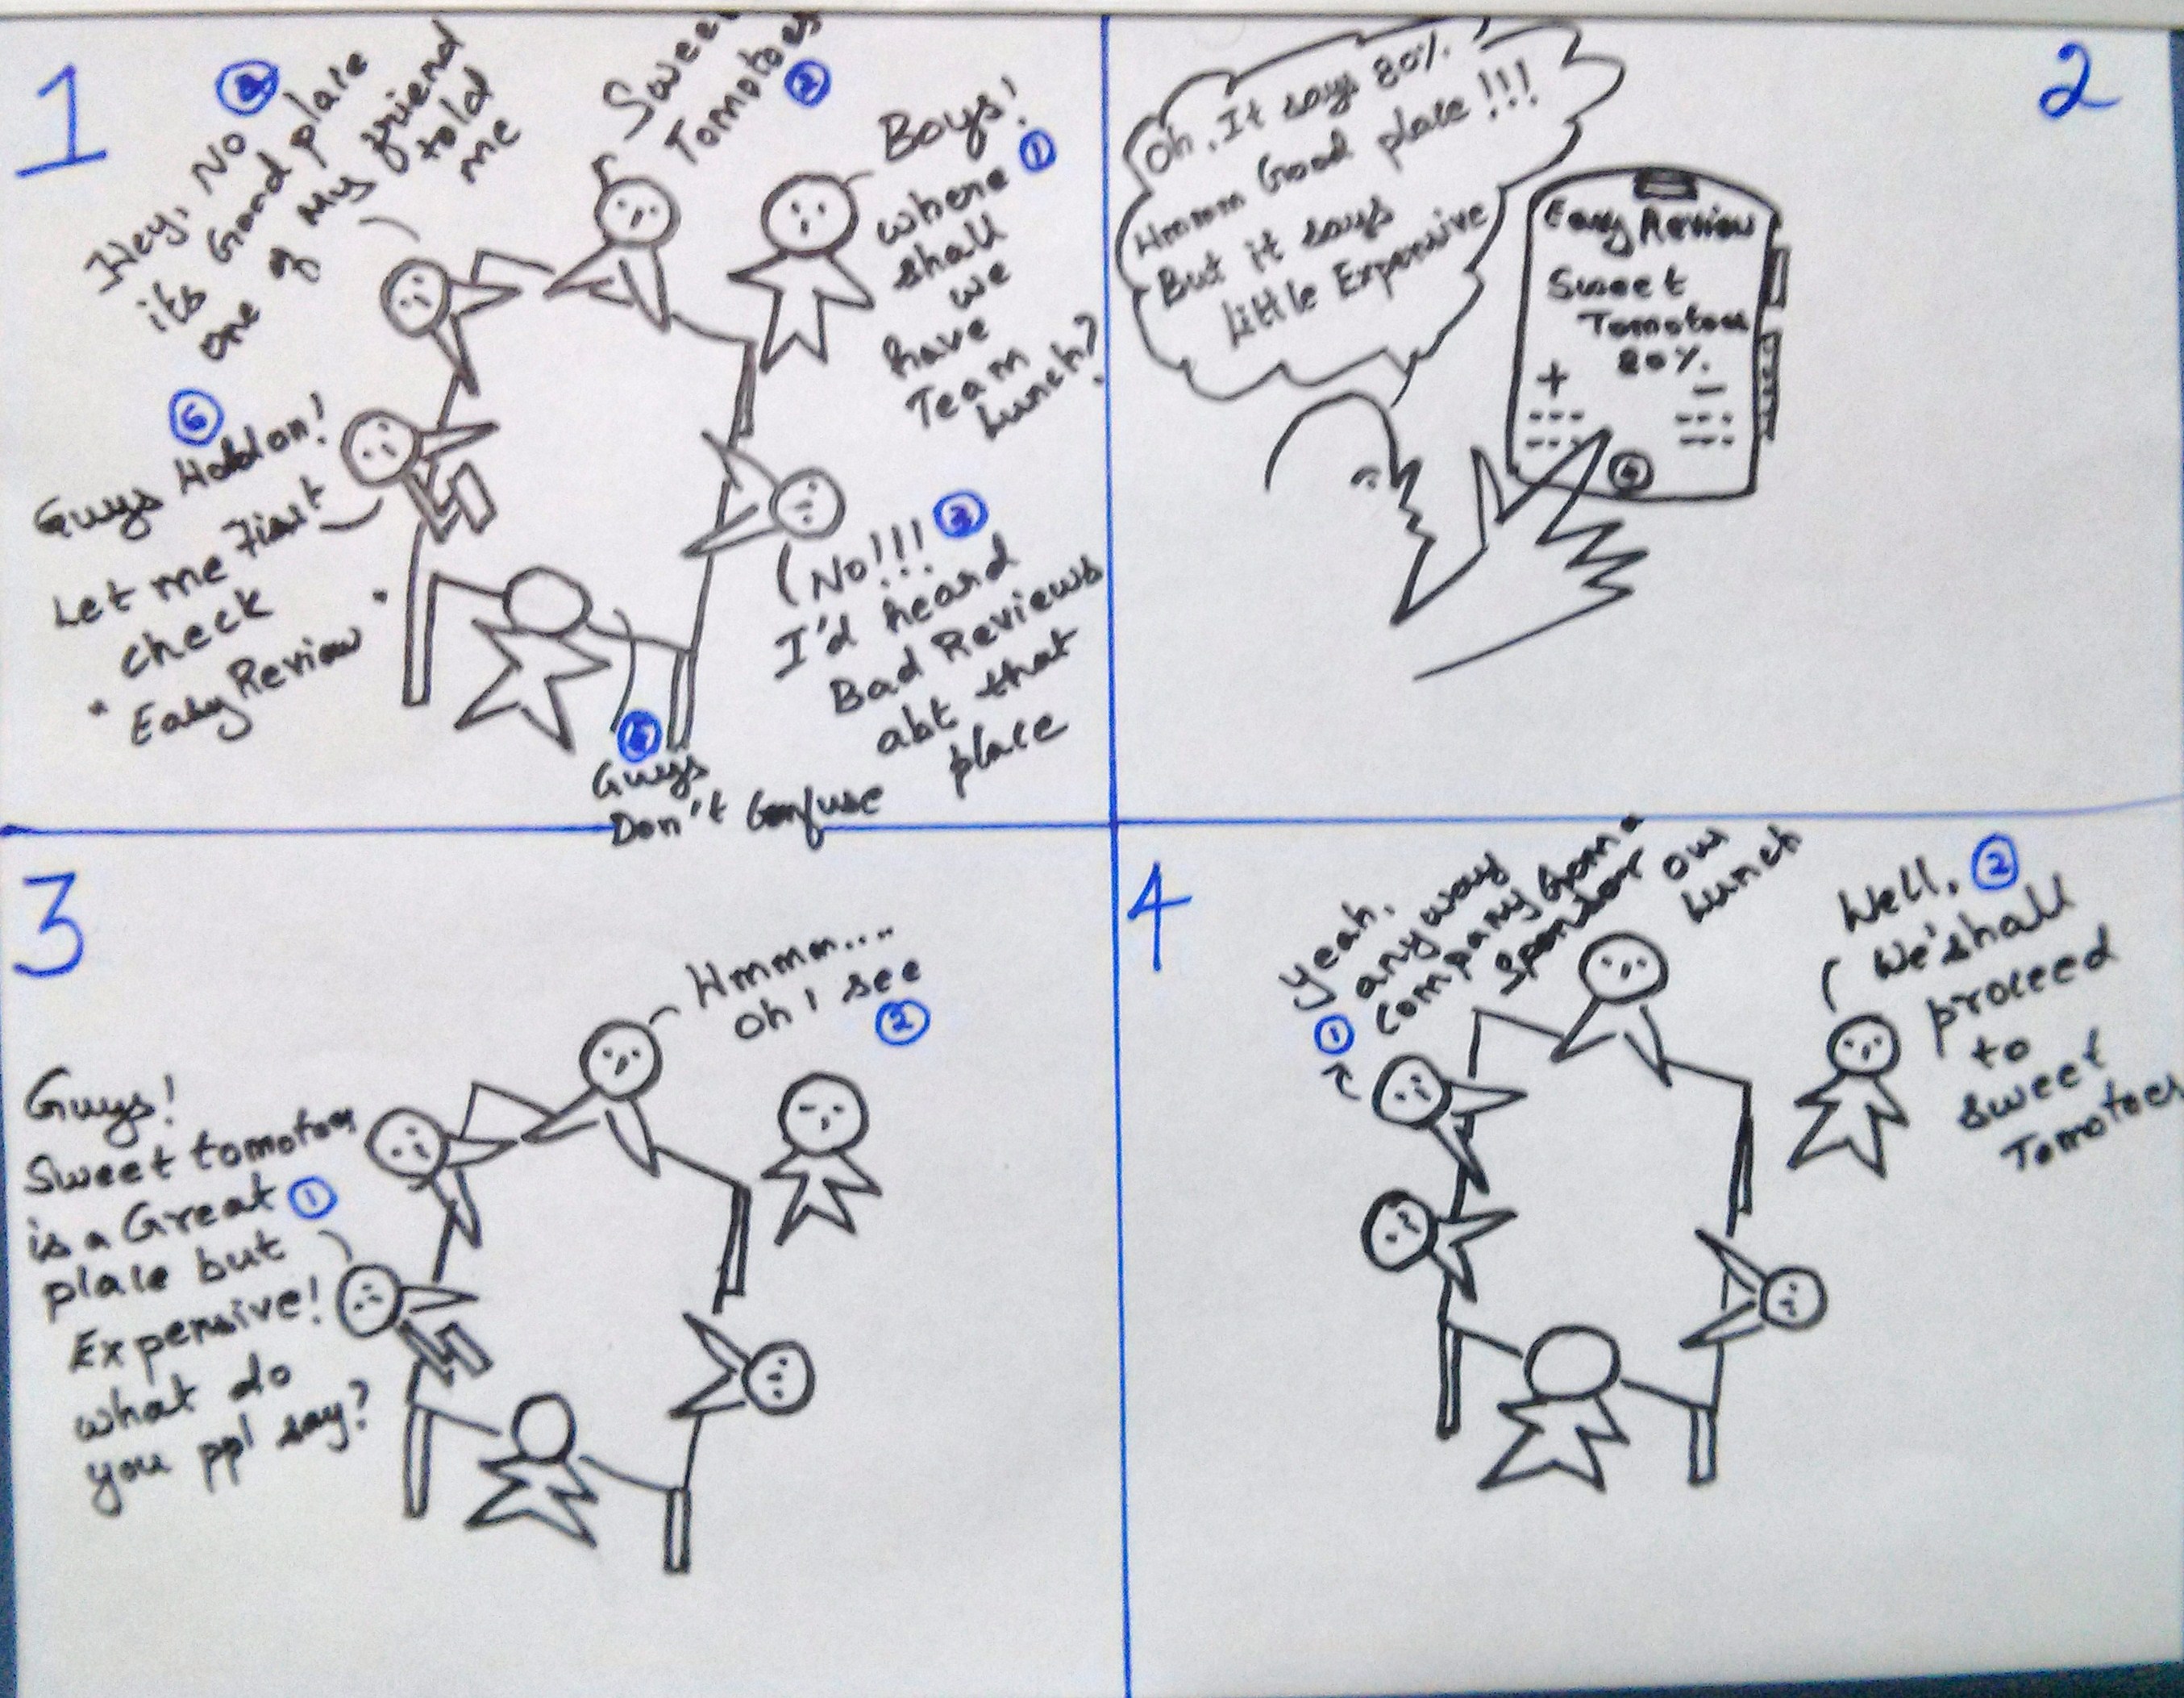 1
Boys!
1
where
shall
we
have
Team
Lunch?
Sweet
Tomotoes
2
No!!!
3
I'd heard
Bad Reviews
abt that
place
Hey, No
its Good place
one of My friend
told
me
5
Guys
Don't Confuse
6
Guys Hold on!
Let me First
check
"Easy Review"
2
Oh, It says 80%.
Hmmm Good place!!!
But it says
little Expensive
Easy Review
Sweet
Tomotoes
80%.
+ -
3
Guys!
Sweet tomotoes
is a Great
1
place but
Expensive!
what do
you ppl say?
Hmmm....
oh I see
2
4
yeah,
anyway
company gonna
sponsor our
lunch
1
Well,
2
We'shall
proceed
to
sweet
Tomotoes